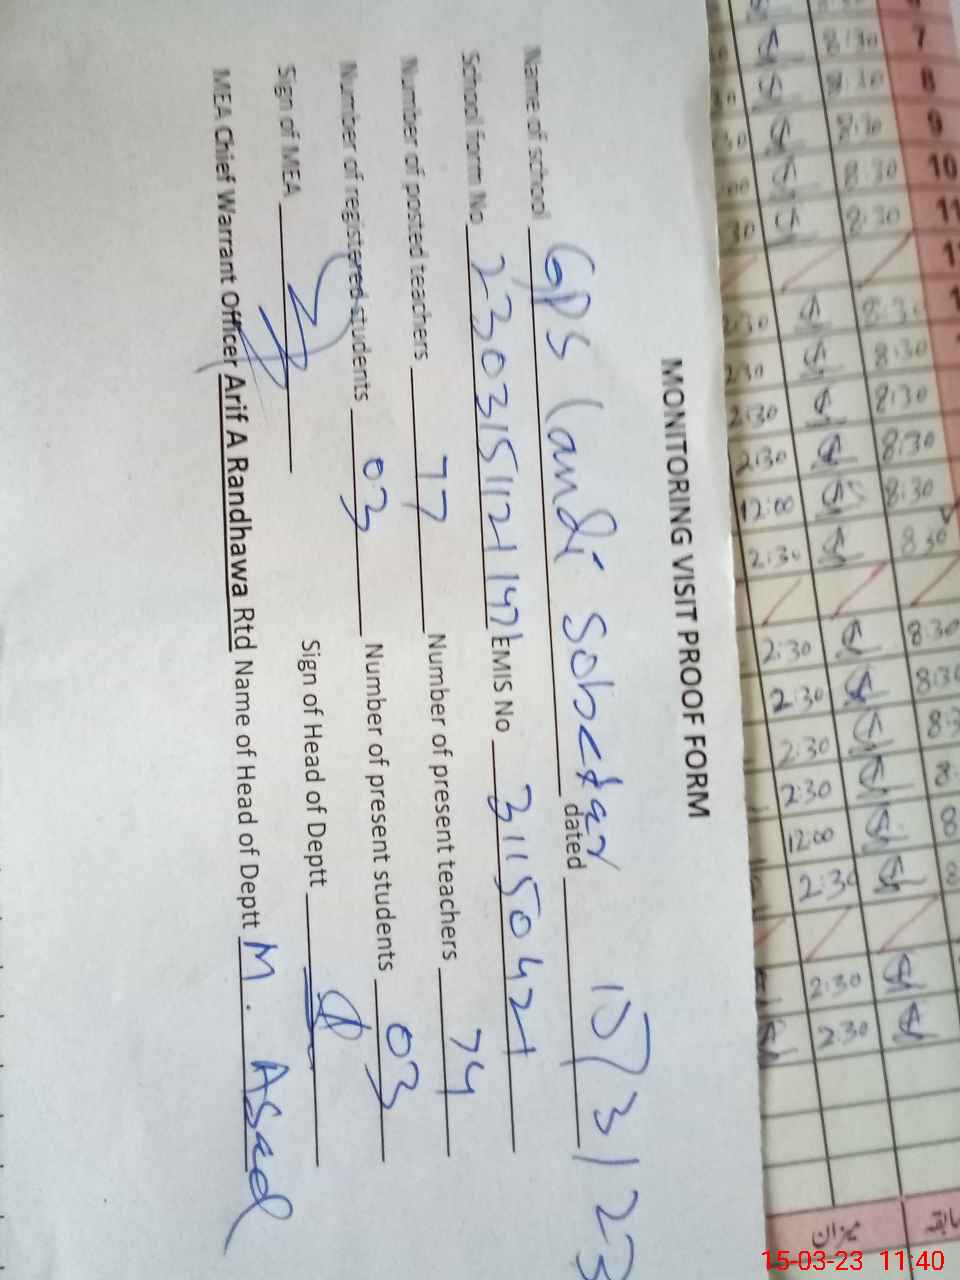 MONITORING VISIT PROOF FORM
Name of school GPS Landi Sobedar dated 15/3/23
School form No 23031511211471 EMIS No 31150421
Number of posted teachers 77 Number of present teachers 74
Number of registered students 03 Number of present students 03
Sign of MEA Sign of Head of Deptt
MEA Chief Warrant Officer Arif A Randhawa Rtd Name of Head of Deptt M. Asad
7 8:30
8 8:30
9 8:30
10 8:30
11 8:30
8:30 2:30
8:30 2:30
8:30 2:30
8:30 2:30
8:30 12:00
8:30 2:30
8:30 2:30
8:30 2:30
2:30
2:30
12:00
2:30
2:30
2:30
میزان
15-03-23 11:40